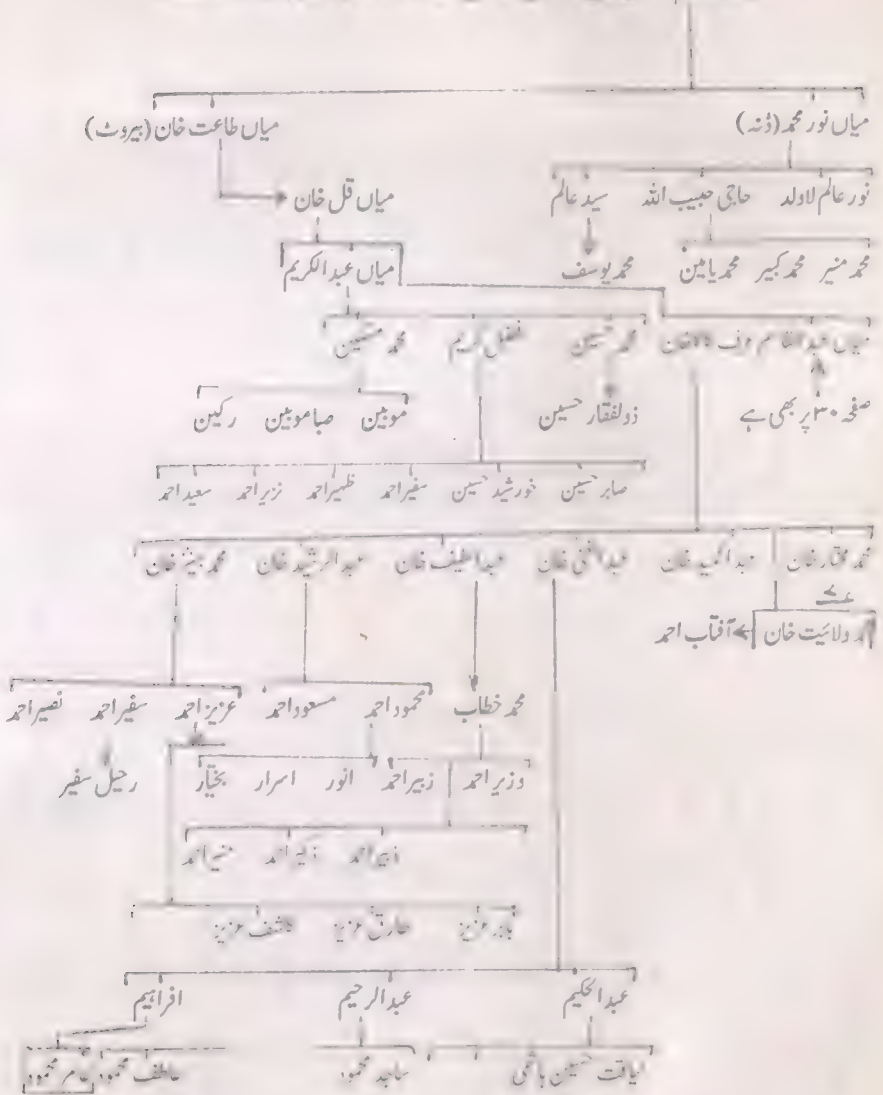 میاں نور محمد (ڈنہ) میاں طاعت خان (بیروٹ)
نور عالم لاولد حاجی حبیب اللہ سید عالم میاں قل خان
محمد منیر محمد کبیر محمد یامین محمد یوسف میاں عبدالکریم
محمد حسین فضل کریم محمد مسکین
صفحہ ۳۰ پر بھی ہے ذولفقار حسین موبین صبا موبین رکین
صابر حسین خورشید حسین سفیر احمد ظہیر احمد نزیر احمد سعید احمد
محمد مختار خان عبدالحمید خان عبدالغنی خان عبدالطیف خان عبدالرشید خان محمد
ولائیت خان آفتاب احمد
محمد خطاب محمود احمد مسعود احمد عزیز احمد سفیر احمد نصیر احمد
وزیر احمد زبیر احمد انور اسرار بختیار رحیل سفیر
بابر عزیز طارق عزیز کاشف عزیز
عبدالحکیم عبدالرحیم افراہیم
لیاقت حسین ہاشمی ساجد محمود عاطف محمود عامر محمود